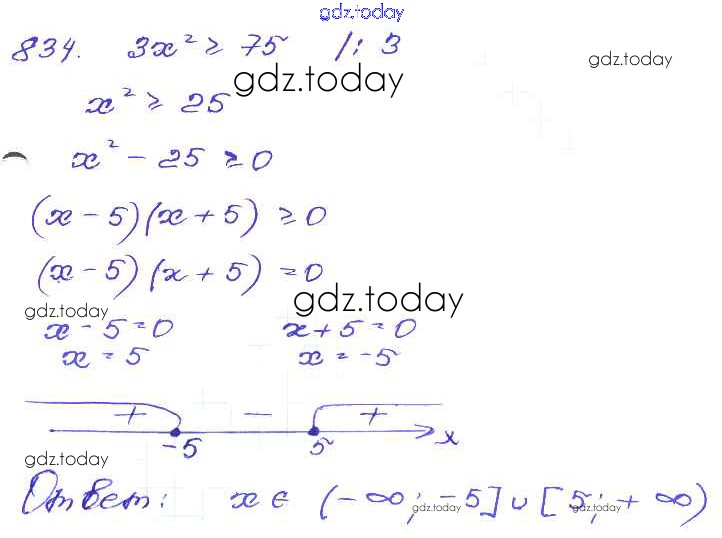 gdz.today
834. 3x² ≥ 75 /: 3
gdz.today
gdz.today
x² ≥ 25
x² - 25 ≥ 0
(x - 5)(x + 5) ≥ 0
(x - 5)(x + 5) = 0
gdz.today
gdz.today
x - 5 = 0 x + 5 = 0
x = 5 x = -5
+ - +
-5 5 x
gdz.today
Ответ: x ∈ (-∞; -5] ∪ [5; +∞)
gdz.today gdz.today